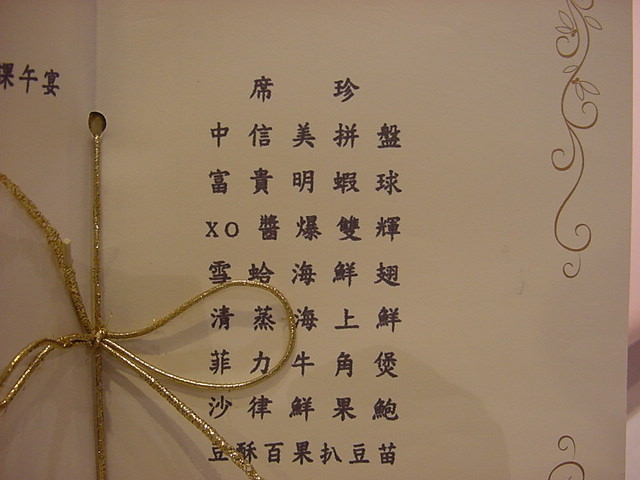 課午宴
席珍
中信美拼盤
富貴明蝦球
XO醬爆雙輝
雪蛤海鮮翅
清蒸海上鮮
菲力牛角煲
沙律鮮果鮑
豆酥百果扒豆苗